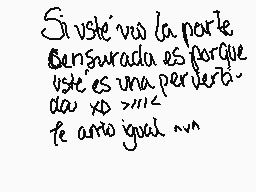 Si usté vio la parte
Censurada es porque
usté es una perverti-
da xD >///<
Te amo igual ^v^